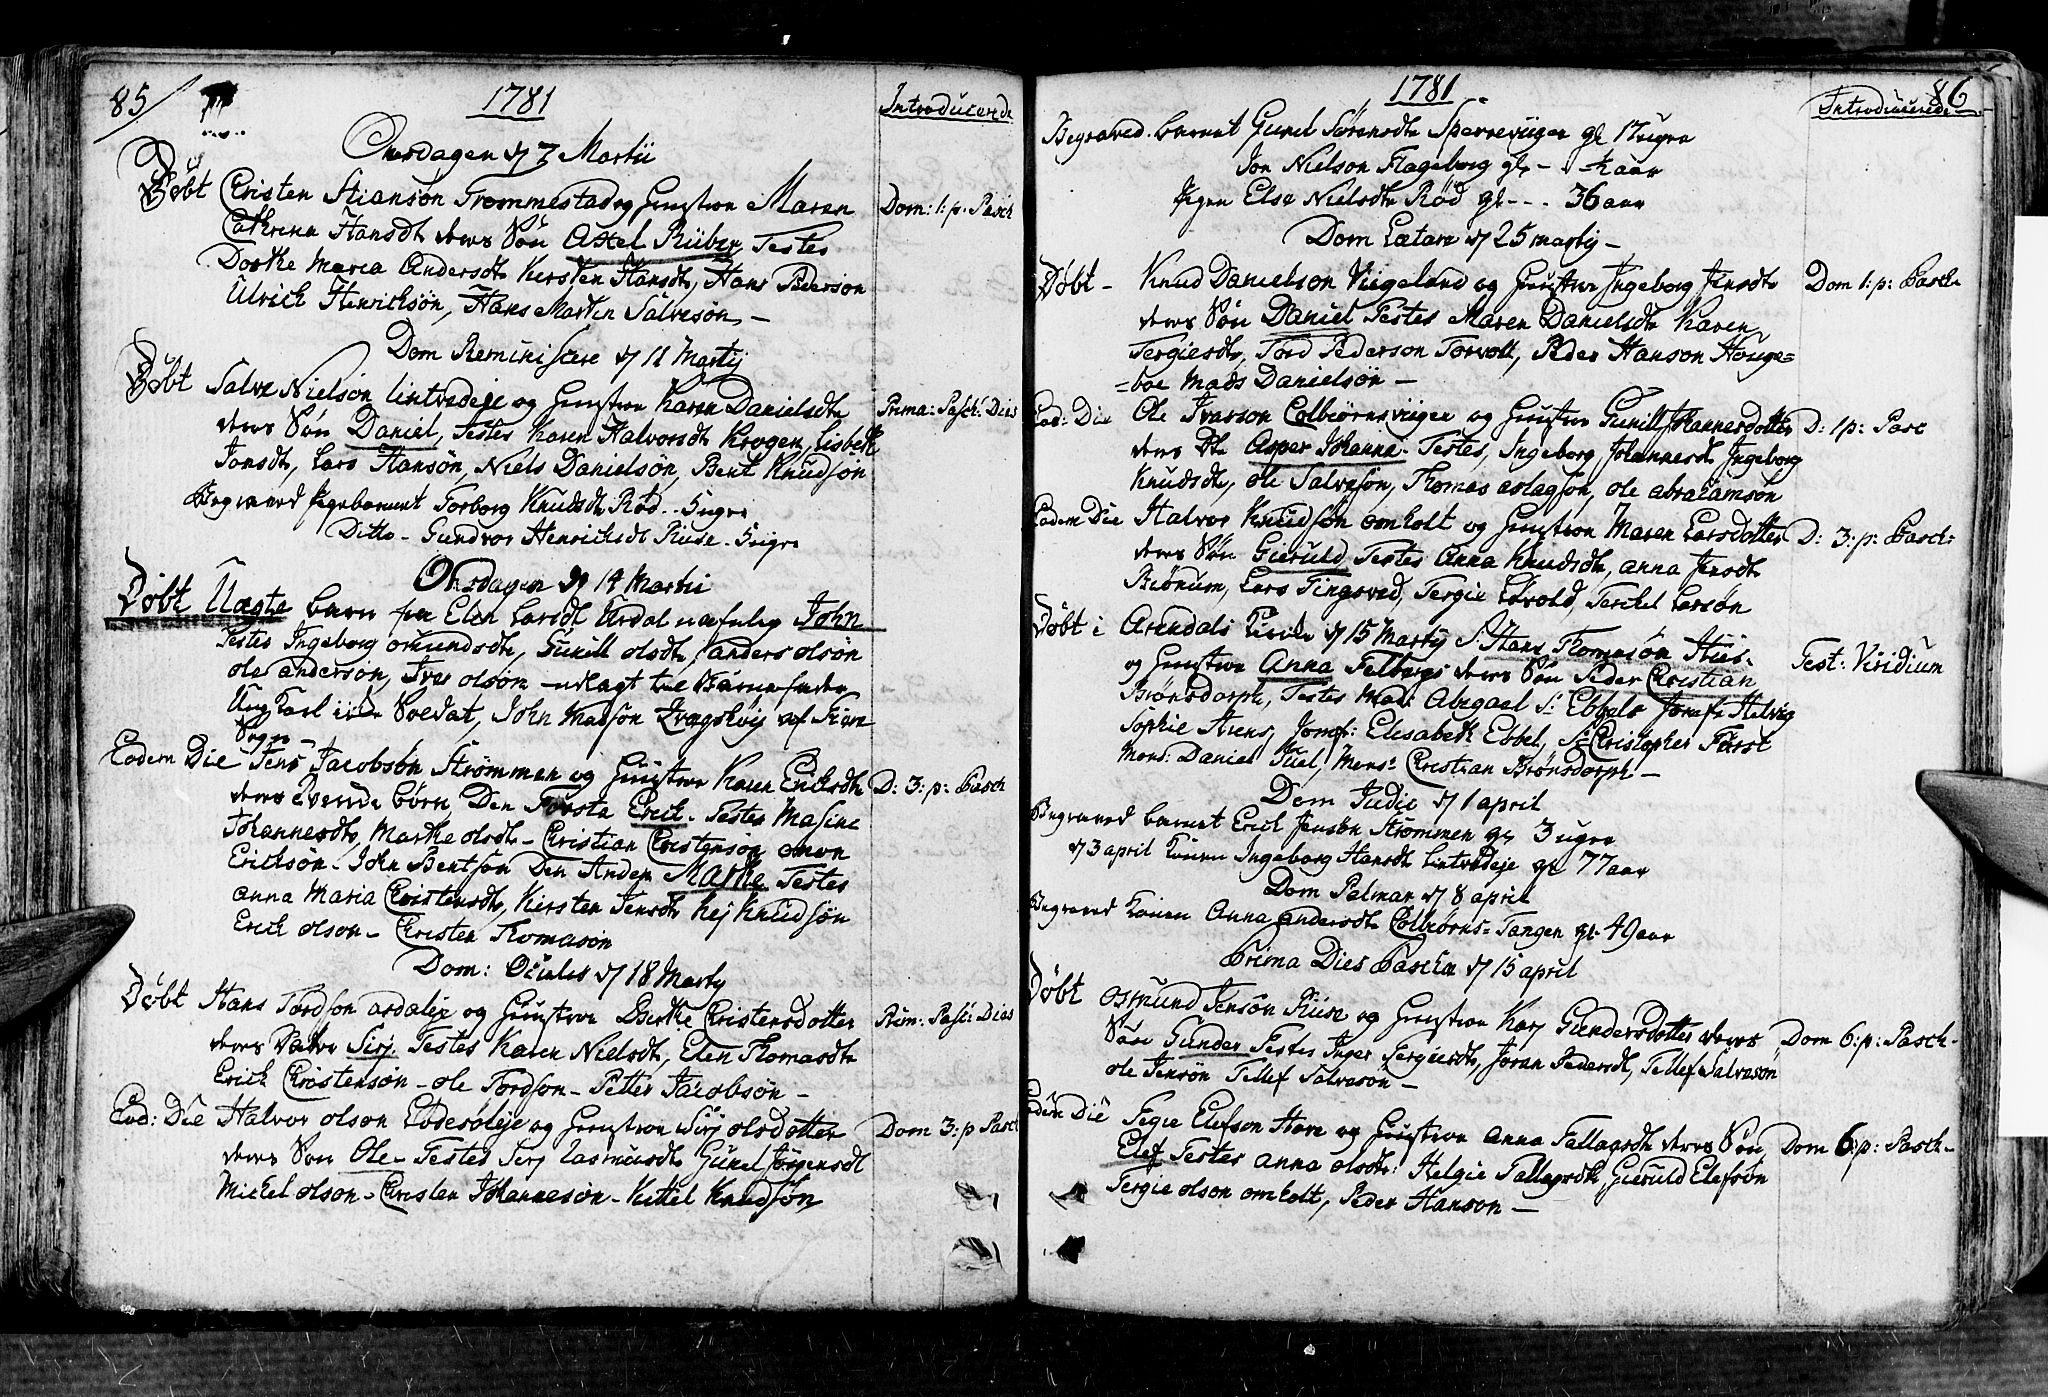 85/
1781
Introducerede
Onsdagen d 7 Martii
Døbt Cristen Stianson Frommestad og Hustroe Maren Dom: 1: p. Pasch
Cathrina Hansdt deres Søn Axel Ruber Testes
Dorthe Maria Andersdt Kersten Hansdt, Hans Pederson
Ulrich Henrichsøn, Hans Martin Salvesøn, —
Dom Reminiscere d 11 Martij
Døbt Salve Nielson lintvedeje og Hustroe Karen Danielsdt Prima: Pasch: Dies
deres Søn Daniel, Testes Karen Halvorsdt Krogen, Lisbeth
Jonsdt, Lars Hansøn, Niels Danielsøn, Bent Knudsøn
Begraved Pigebarnet Torborg Knudsdt Rød .. 5 ugre
Ditto - Gundvor Henrichsdt Ruse . 5 ugre
Onsdagen d 14 Martii
Døbt Uægte barn fra Elen Larsdt Urdal nafnlig John
Testes Ingeborg omundsdt, Gunill olsdt, anders olsøn
ole anderson, Iver olson - udlagt til Barnefader
Ung Karl Soldat, John Madson
Sogn -
Eodem Die Jens Jacobsøn Strømmen og Hustroe Karen Ericksdt D: 3: p: Pasch
deres Tvende børn Den Første Erick - Testes Masine
Johannesdt, Marthe olsdt - Christian Cristensøn omon
Ericksøn - John Bentson Den Anden Marthe Testes
anna Maria Cristensdt, Kirsten Jensdt Kej Knudsøn
Erick olson - Cristen Thomasøn
Dom: Oculi d 18 Marty
Døbt Hans Tordson asdaleje og Hustroe Berthe Cristensdotter Prim: Pasc: Dies
deres Datter Sirj. Testes Karen Nielsdt, Elen Thomasdt
Erick Cristensøn - ole Tordson - Petter Jacobsøn -
Eod: Die Halvor olson Eddesøleje og Hustroe Sirj olsdotter Dom 3: p Pasch
deres Søn Ole - Testes Sirj Rasmusdt Gunel Jørgensdt
Mickel olson - Cristen Johannesøn - Kittel Knudsøn
1781
86
Introducerede
Begraved barnet Gunel Sørensdt Sperreviigen gl 17 ugre
Jon Nielson Flageborg gl - 1½ aar
Pigen Else Nielsdt Rød gl - - . 36 aar
Dom Lætare d 25 martij —
Døbt - Knud Danielson Viigeland og Hustroe Ingeborg Jensdt Dom 1: p: Pasch
deres Søn Daniel Testes Maren Danielsdt Karen
Tergiesdt, Tord Pederson Torvolt, Peder Hanson Houge=
=boe Mads Danielsøn —
Eod: Die Ole Ivarson Colbiørnsviigen og Hustroe Gunill Johannesdotter D: 1 p: Pasc
deres Dt Asper Johanna - Testes, Ingeborg Johannesdt Ingeborg
Knudsdt, ole Salvesøn, Thomas aslagson, ole abrahamson
Eodem Die Halvor Knudsøn omholt og Hustroe Maren Larsdotter D: 3: p: Pasch:
deres Søn Gieruld Testes Anna Knudsdt, anna Jensdt
Biønum, Lars Tingsved, Tergie Løvold, Terckel Larsøn
Døbt i Arendals Kirke d 15 Martij Sr Hans Thomasøn Huus
og Hustroe Anna Felbergs deres Søn Peder Christian Fest: Viridium
Brønsdorph, Testes Mad: Abegael Sr Ebbels Jomfr Helvig
Sophie Arens, Jomfr: Elisabeth Ebbel, Sr Cristopher Fürst
Mons: Daniel Juel, Mons: Cristian Brønsdorph —
Dom Judic d 1 april
Begraved barnet Erick Jensøn Strømmen gl 3 ugre
d 3 april Konen Ingeborg Hansdt lintvedeje gl 77 aar
Dom Palmar d 8 april
Begraved Konen Anna andersdt Colbiørns=Tangen gl. 49 aar
Prima Dies Paschæ d 15 april
Døbt Osmund Jensøn Ruse og Hustroe Karj Gundersdotter deres Dom 6: p: Pasch -
Søn Gunder Testes Inger Tergiesdt, Joran Pedersdt, Tellef Salvesøn
ole Jensøn Tellef Salvesøn —
Eodem Die Tegie Elefson Have og Hustroe anna Tallagsdt deres Søn, Dom 6: p: Pasch -
Elef Testes anna olsdt: Helgie Tallagsdt, Gieruld Elefsøn
Tergie olson omholt, Peder Hanson —